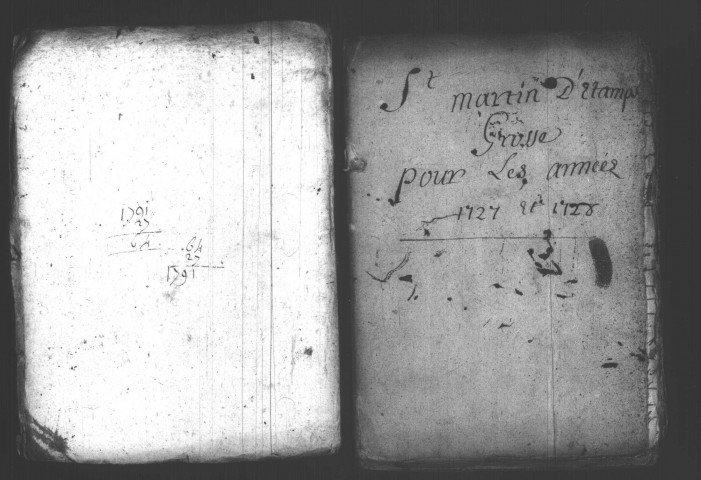 1791
27
64
64
27
1791
St martin D'Etampes
Grosse
pour Les années
1727 et 1728